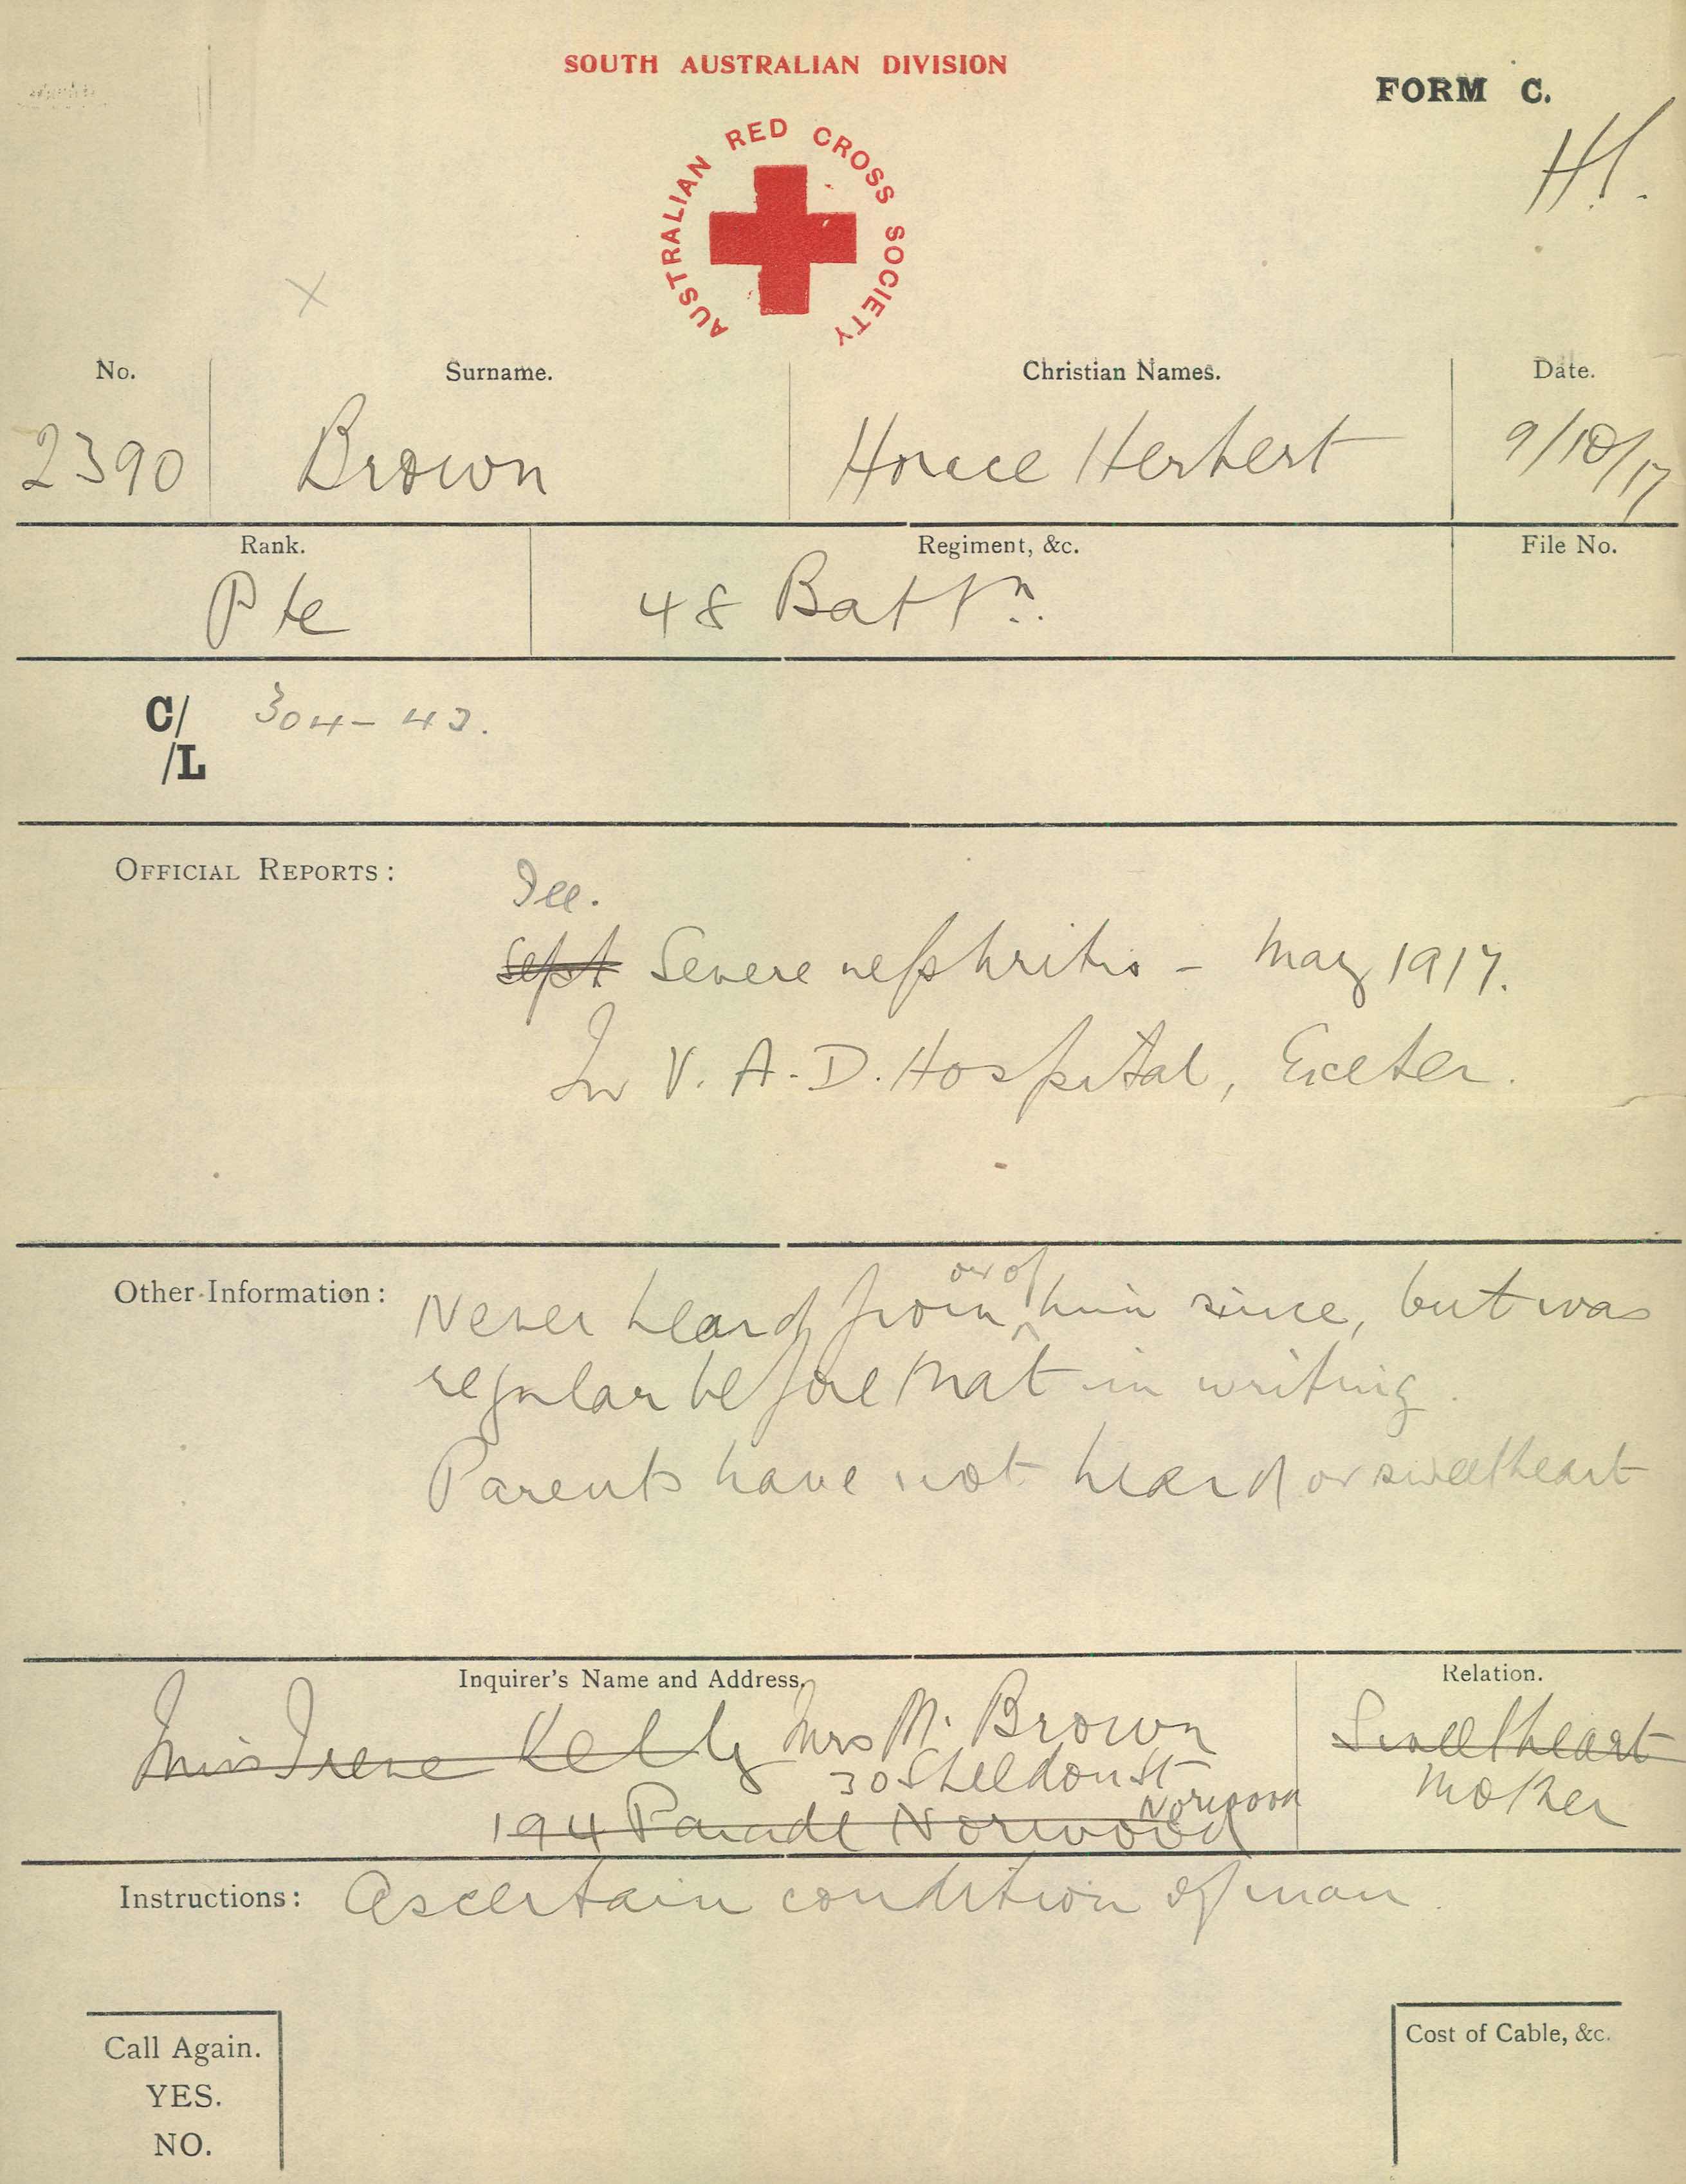 SOUTH AUSTRALIAN DIVISION
FORM C.
H!.
AUSTRALIAN RED CROSS SOCIETY
X
No. Surname. Christian Names. Date.
2390 Brown Horace Herbert 9/10/17
Rank. Regiment, &c. File No.
Pte 48 Battn.
C/ 304-43.
/L
OFFICIAL REPORTS:
Ill.
Sept Severe nephritis - May 1917.
In V.A.D. Hospital, Exeter.
or of
Other Information: Never heard from him since, but was
regular before that in writing.
Parents have not heard or sweetheart
Inquirer's Name and Address. Relation.
Miss Irene Kelly Mrs M. Brown Sweetheart
30 Sheldon St Mother
Norwood
194 Parade Norwood
Instructions: Ascertain condition of man.
Call Again.
YES.
NO.
Cost of Cable, &c.